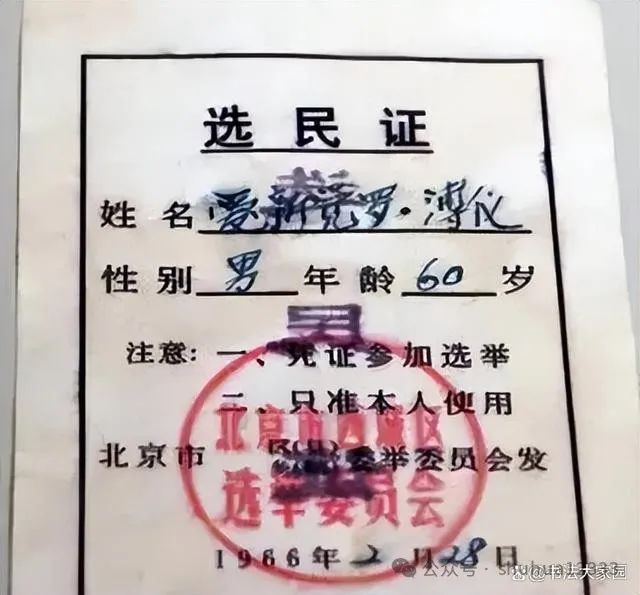 选民证
姓名 爱新觉罗·溥仪
性别 男 年龄 60 岁
注意：一、凭证参加选举
二、只准本人使用
北京市 选举委员会发
北京市西城区
选举委员会
1966年2月28日
公众号·shuhua1
书法大家园